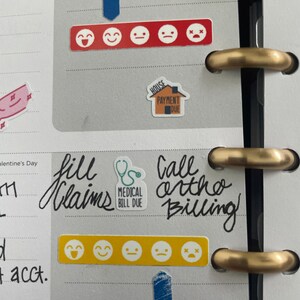 HOUSE
PAYMENT
DUE
alentine's Day
fill
Claims
MEDICAL
BILL DUE
Call
ortho
Billing
acct.